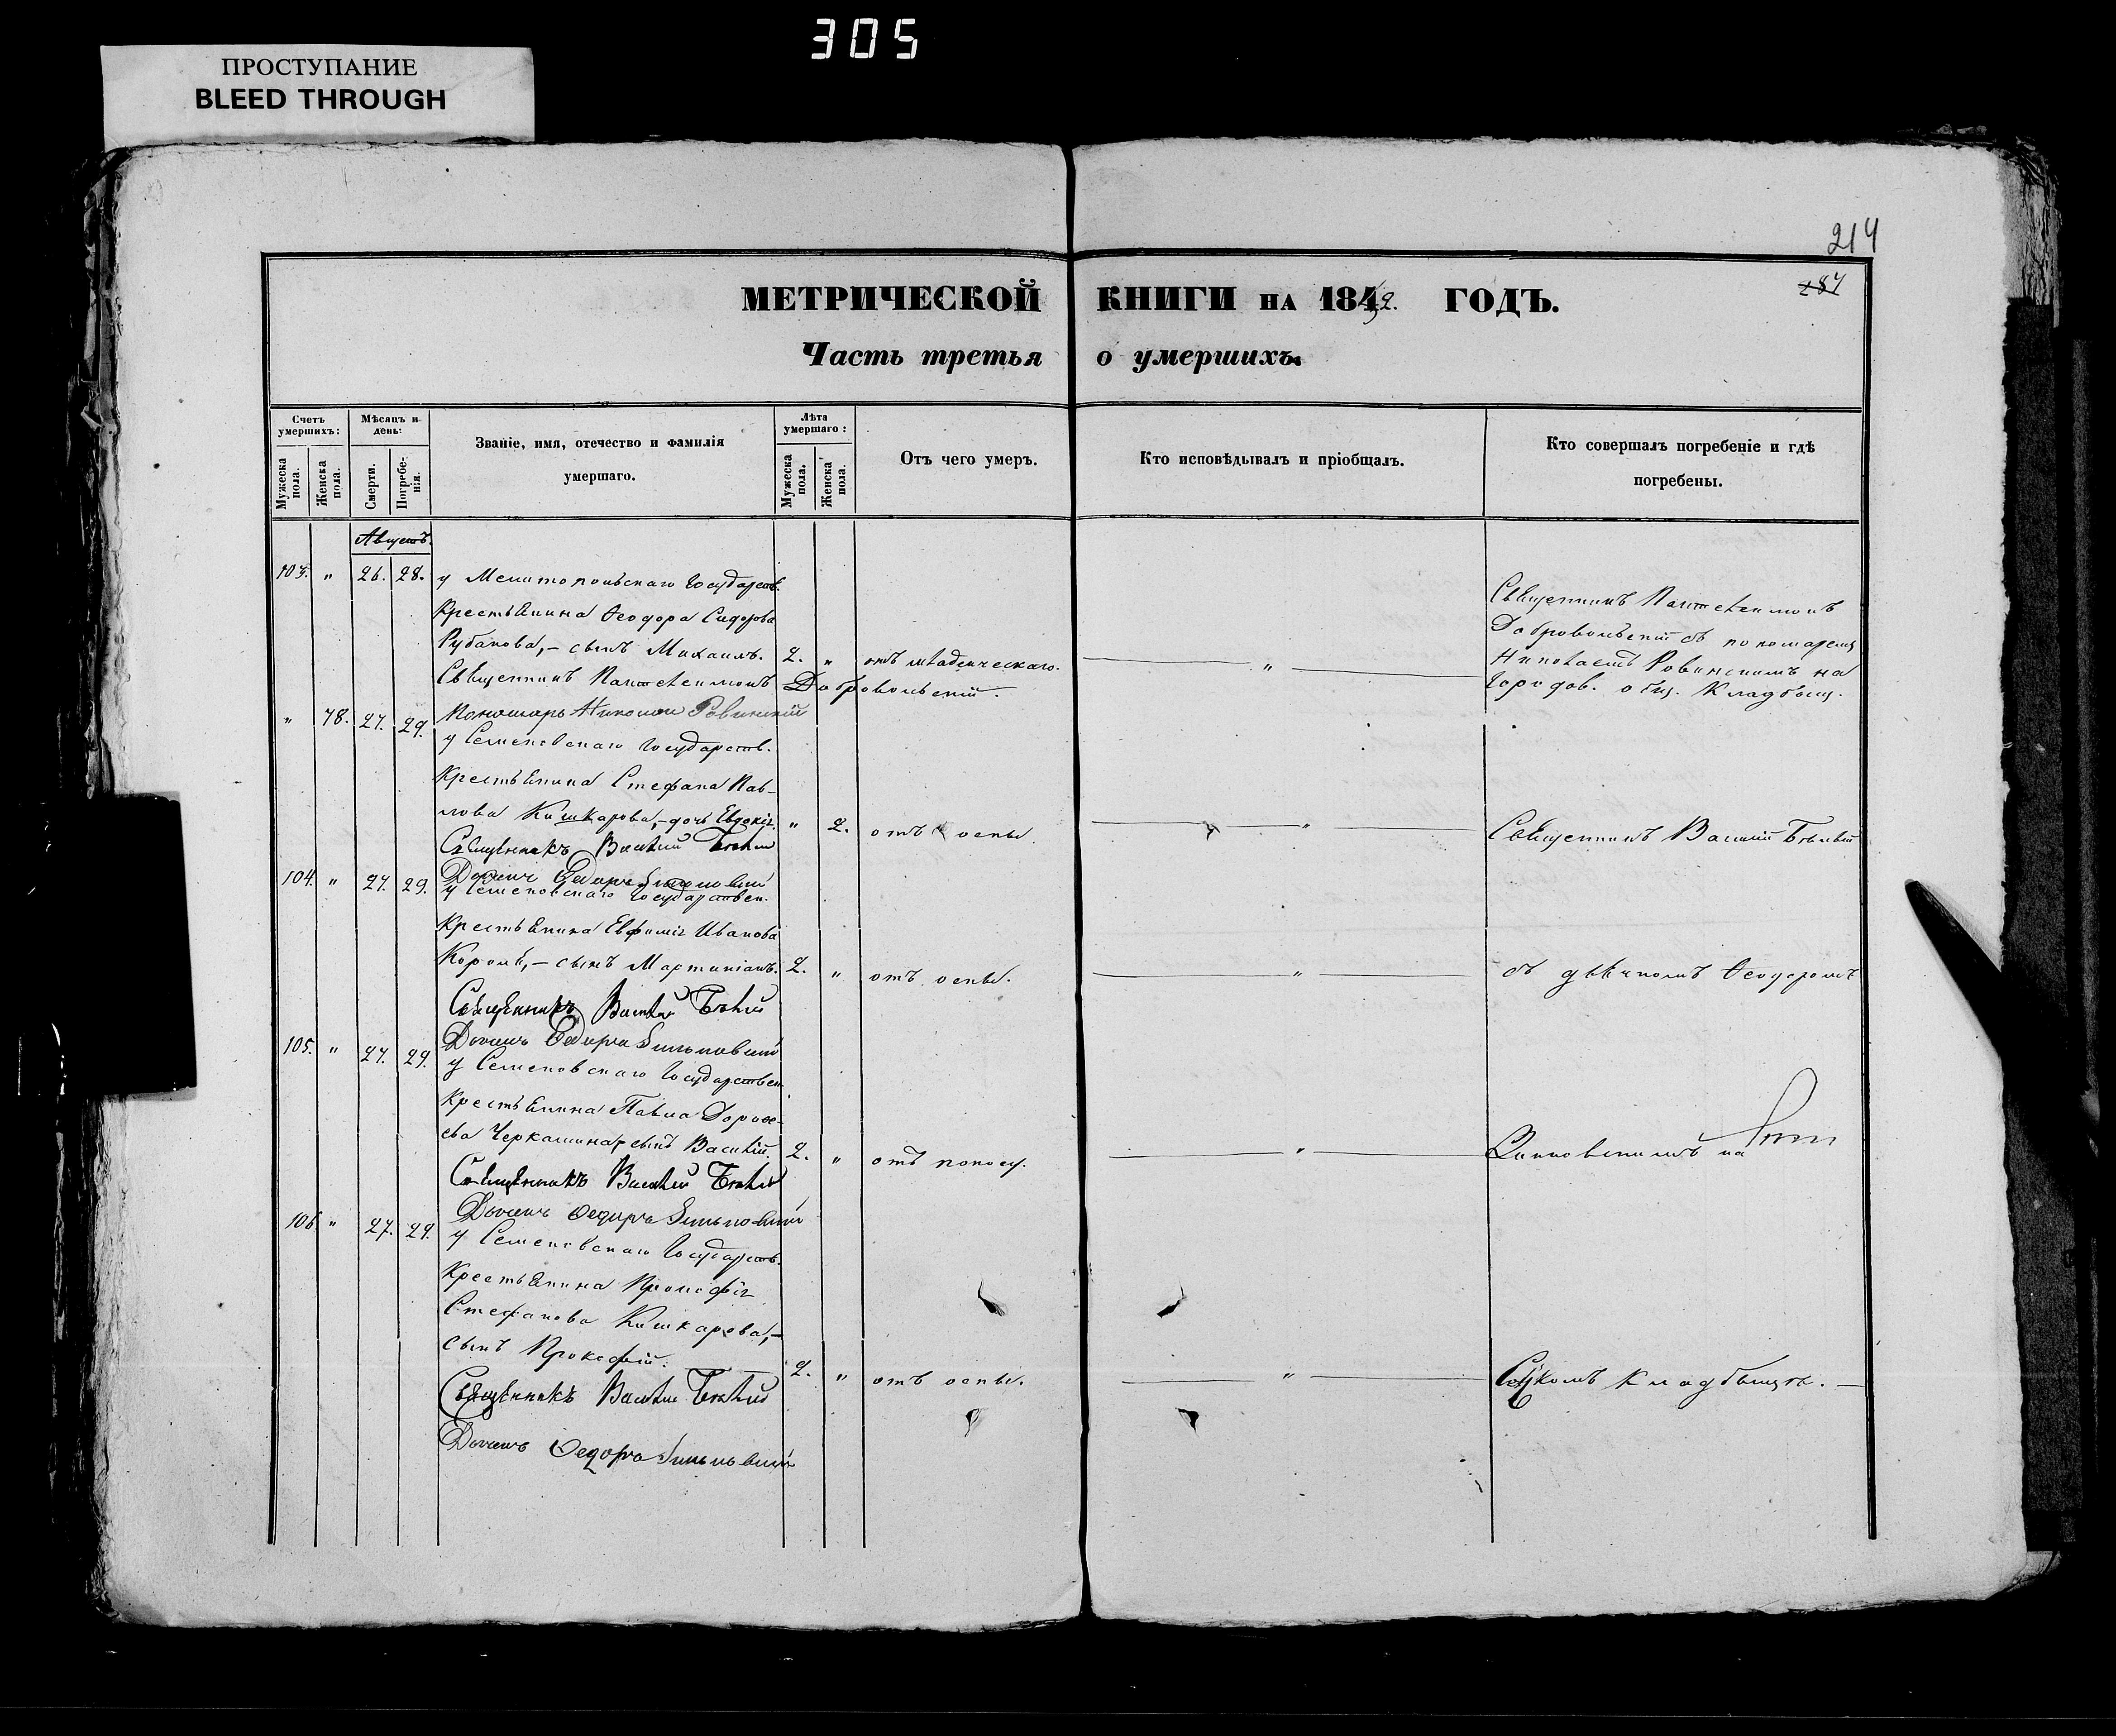 305
ПРОСТУПАНИЕ
BLEED THROUGH
214
287
МЕТРИЧЕСКОЙ КНИГИ НА 1852. ГОДЪ.
Часть третья о умершихъ.
Счетъ умершихъ:
Мѣсяцъ и день:
Званіе, имя, отечество и фамилія умершаго.
Лѣта умершаго:
Отъ чего умеръ.
Кто исповѣдывалъ и пріобщалъ.
Кто совершалъ погребеніе и гдѣ погребены.
Мужеска пола.
Женска пола.
Смерти.
Погребенія.
Мужеска пола.
Женска пола.
Августъ.
103. " 26. 28. у Мелитопольскаго Государств.
Крестьянина Ѳеодора Сидорова
Рубанова,- сынъ Михаилъ. 2. " отъ младенческаго. "
Священникъ Пантелеимонъ Добровольскій.
Священникъ Пантелеимонъ
Добровольскій съ пономаремъ
Николаемъ Ровинскимъ на
Городов. общ. Кладбищ.
Пономарь Николай Ровинскій
" 78. 27. 29. у Семеновскаго Государств.
Крестьянина Стефана Пав-
лова Кишкарова,- дочь Евдокія. " 2. отъ оспы. " Священникъ Василій Бѣлый
Священникъ Василій Бѣлый
Дьячекъ Ѳедоръ
104. " 27. 29. у Семеновскаго Государствен.
Крестьянина Евфимія Иванова
Короля,- сынъ Мартиніанъ. 2. " отъ оспы. " съ дьячкомъ Ѳеодоромъ
Священникъ Василій Бѣлый
Дьячекъ Ѳедоръ
105. " 27. 29. у Семеновскаго Государствен.
Крестьянина Павла Дороѳе-
ева Черкашина, сынъ Василій. 2. " отъ поносу. " на
Священникъ Василій Бѣлый
Дьячекъ Ѳедоръ
106. " 27. 29. у Семеновскаго Государств.
Крестьянина Прокофія
Стефанова Кишкарова,-
сынъ Прокофій. 2. " отъ оспы. " кладбищѣ.
Священникъ Василій Бѣлый
Дьячекъ Ѳедоръ